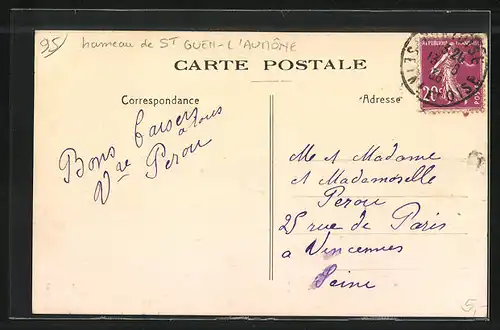 95 hameau de ST OUEN-L'AUMÔNE
CARTE POSTALE
Correspondance
Adresse
Bons baisers
a tous
Vve Perou
Me & Madame
& Mademoiselle
Perou
25 rue de Paris
a Vincennes
Seine
20c
5,-